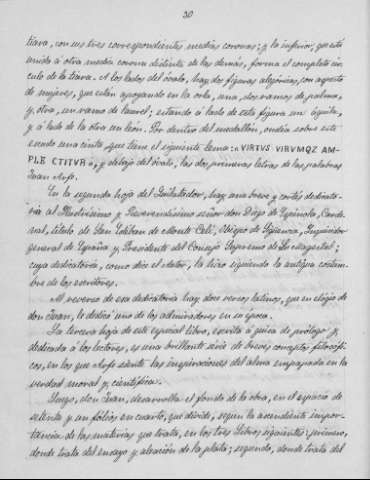 30
tiara, con sus tres correspondientes medias coronas; y la inferior, que está
unida á otra media corona distinta de las demás, forma el completo cír-
culo de la tiara. A los lados del óvalo, hay dos figuras alegóricas, con aspecto
de mujeres, que están apoyando en la orla, una, dos ramos de palma,
y, otra, un ramo de laurel; estando á lado de esta figura un águila,
y á lado de la otra un león. Por dentro del medallón, y sobre este
escudo una cinta que tiene el siguiente lema: « VIRTVS VIRVMQZ AM-
PLE CTITVR », y debajo del óvalo, las dos primeras letras de las palabras
Juan Arfe.
En la segunda hoja del Quilatador, hay una breve y cortés dedicato-
ria al Ilustrísimo y Reverendísimo señor don Diego de Espinosa, Carde-
nal, título de San Esteban de Monte Celi, Obispo de Sigüenza, Inquisidor
general de España y Presidente del Consejo Supremo de
cuya dedicatoria, como dice el Autor, la hizo siguiendo la antigua costum-
bre de los escritores.
Al reverso de esa dedicatoria hay doce versos latinos, que en elogio de
don Juan, le dedicó uno de los admiradores en su época.
La tercera hoja de este especial libro, escrita á guisa de prólogo y
dedicada á los lectores, es una brillante serie de breves conceptos filosófi-
cos, en los que Arfe siente las inspiraciones del alma empapada en la
verdad moral y científica.
Luego, don Juan, desarrolla el fondo de la obra, en el espacio de
setenta y un folios en cuarto, que divide, según la ascendiente impor-
tancia de las materias que trata, en los tres Libros siguientes: primero,
donde trata del ensayo y aleación de la plata; segundo, donde trata del